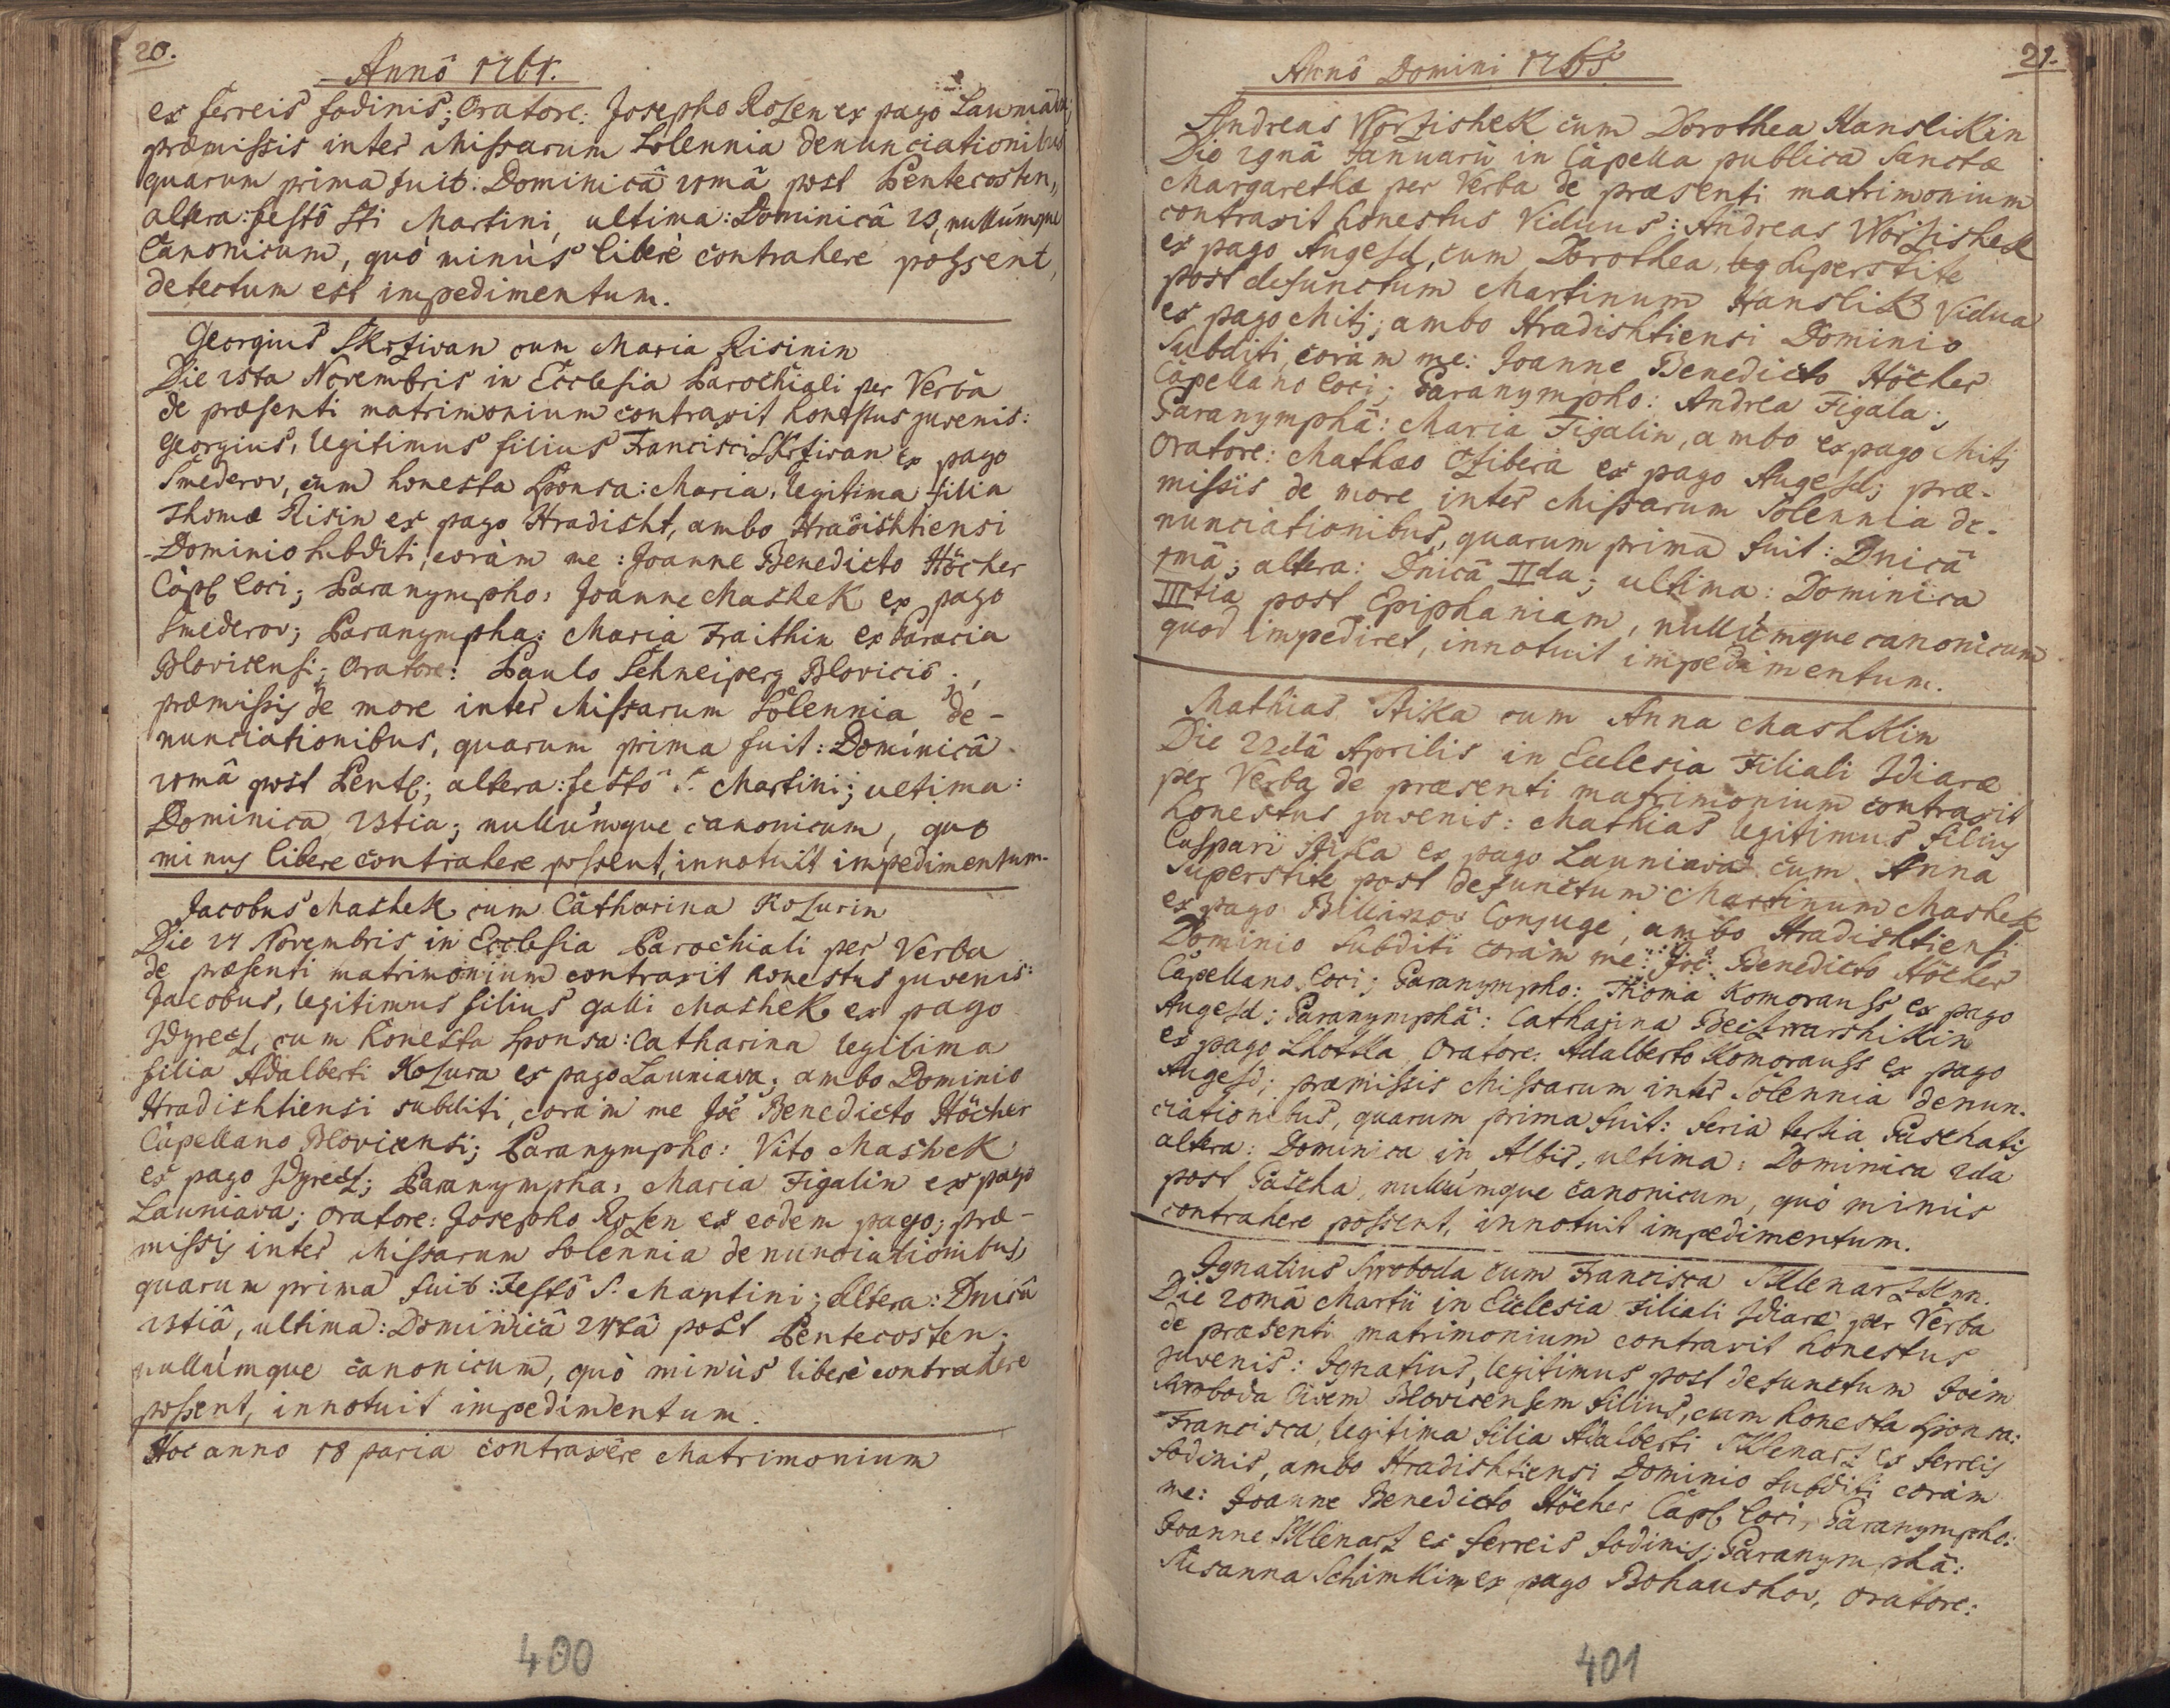 20.
Annô 1764.
ex ferreis fodinis; Oratore: Josepho Rosen ex pago Launiava,
præmissis inter Missarum Solennia denunciationibus
quarum prima fuit: Dominicâ 20mâ post Pentecosten,
altera: festô Sti Martini, ultima: Dominicâ 23, nullúmque
Canonicum, quò minùs liberè contrahere possent,
detectum est impedimentum.
Georgius Skrziwan cum Maria Risinin
Die 21sta Novembris in Ecclesia Parochiali per Verba
de præsenti matrimonium contraxit honestus juvenis:
Georgius, legitimus filius Francisci Skrziwan ex pago
Smederov, cum honesta Sponsa: Maria, legitima filia
Thomæ Risin ex pago Hradisht, ambo Hradishtiensi
Dominio subditi, coràm me: Joanne Benedicto Höcher
Capl. loci; Paranympho: Joanne Mashek ex pago
Smederov; Paranympha: Maria Fraithin ex Paracia
Blovicensi; Oratore: Paulo Schneiperg Blovicio;
præmissis de more inter Missarum Solennia de-
nunciationibus, quarum prima fuit: Dominicâ
20mâ post Pent; altera: festô S. Martini; ultima:
Dominica 23tia; nullúmque canonicum, quo
minus libere contrahere possent, innotuit impedimentum.
Jacobus Mashek cum Catharina Kosurin
Die 27 Novembris in Ecclesia Parochiali per Verba
de præsenti matrimonium contraxit honestus juvenis:
Jacobus, legitimus filius Galli Mashek ex pago
Zdyretz, cum honesta Sponsa: Catharina legitima
filia Adalberti Kosura ex pago Launiava; ambo Dominio
Hradishtiensi subditi, coràm me Joê Benedicto Höcher
Capellano Blovicensi; Paranympho: Vito Mashek
ex pago Zdyretz; Paranympha: Maria Figalin ex pago
Launiava; Oratore: Josepho Rosen ex eodem pago; præ-
missis inter Missarum Solennia denunciationibus,
quarum prima fuit: Festô S. Martini; altera: Dnicâ
23tiâ, ultima: Dominicâ 24tâ post Pentecosten;
nullúmque canonicum, quò minùs liberè contrahere
possent, innotuit impedimentum.
Hoc anno 18 paria contraxêre Matrimonium
400
21.
Annô Domini 1765
Andreas Worzishek cum Dorothea Hanslikin
Die 29nâ Januarii in Capella publica Sanctæ
Margarethæ per Verba de præsenti matrimonium
contraxit honestus Viduus: Andreas Worzishek
ex pago Augesd, cum Dorothea, superstite
post defunctum Martinum Hanslik Vidua
ex pago Mitj; ambo Hradishtiensi Dominio
subditi, coràm me: Joanne Benedicto Höcher
Capellano loci; Paranympho: Andrea Figala;
Paranymphâ: Maria Figalin, ambo ex pago Mitj
Oratore: Mathæo Czibera ex pago Augesd; præ-
missis de more inter Missarum Solennia de-
nunciationibus, quarum prima fuit: Dnicâ
1mâ; altera: Dnicâ IIda; ultima: Dominica
IIItia post Epiphaniam, nullúmque canonicum
quod impediret, innotuit impedimentum.
Mathias Aiska cum Anna Mashkin
Die 22dâ Aprilis in Ecclesia Filiali Zdiaræ
per Verba de præsenti matrimonium contraxit
honestus juvenis: Mathias legitimus filius
Caspari Aiska ex pago Launiava cum Anna
superstite post defunctum Martinum Mashek
ex pago Conjuge, ambo Hradishtiensi
Dominio subditi coràm me: Joê: Benedicto Höcher
Capellano loci; Paranympho: Thoma Komorauss ex pago
Augesd; Paranymphâ: Catharina Beizwarshikin
ex pago Lhotska, Oratore: Adalberto Komorauss ex pago
Augesd; præmissis Missarum inter Solennia denun-
ciationibus, quarum prima fuit: feria tertia Paschatis
altera: Dominica in Albis; ultima: Dominica 2da
post Pascha, nullúmque canonicum, quò minùs
contrahere possent, innotuit impedimentum.
Ignatius Swoboda cum Francisca Sklenarzkenn.
Die 20mâ Martii in Ecclesia Filiali Zdiaræ per Verba
de præsenti matrimonium contraxit honestus
juvenis: Ignatius, legitimus post defunctum Joêm
Swoboda Civem Blovicensem filius, cum honesta Sponsa:
Francisca, legitima filia Adalberti Sklenarz ex ferreis
fodinis, ambo Hradishtiensi Dominio subditi coràm
me: Joanne Benedicto Höcher Capl. loci, Paranympho:
Joanne Sklenarz ex ferreis fodinis; Paranymphâ:
Susanna Schimkin ex pago Bohaushov, Oratore:
401